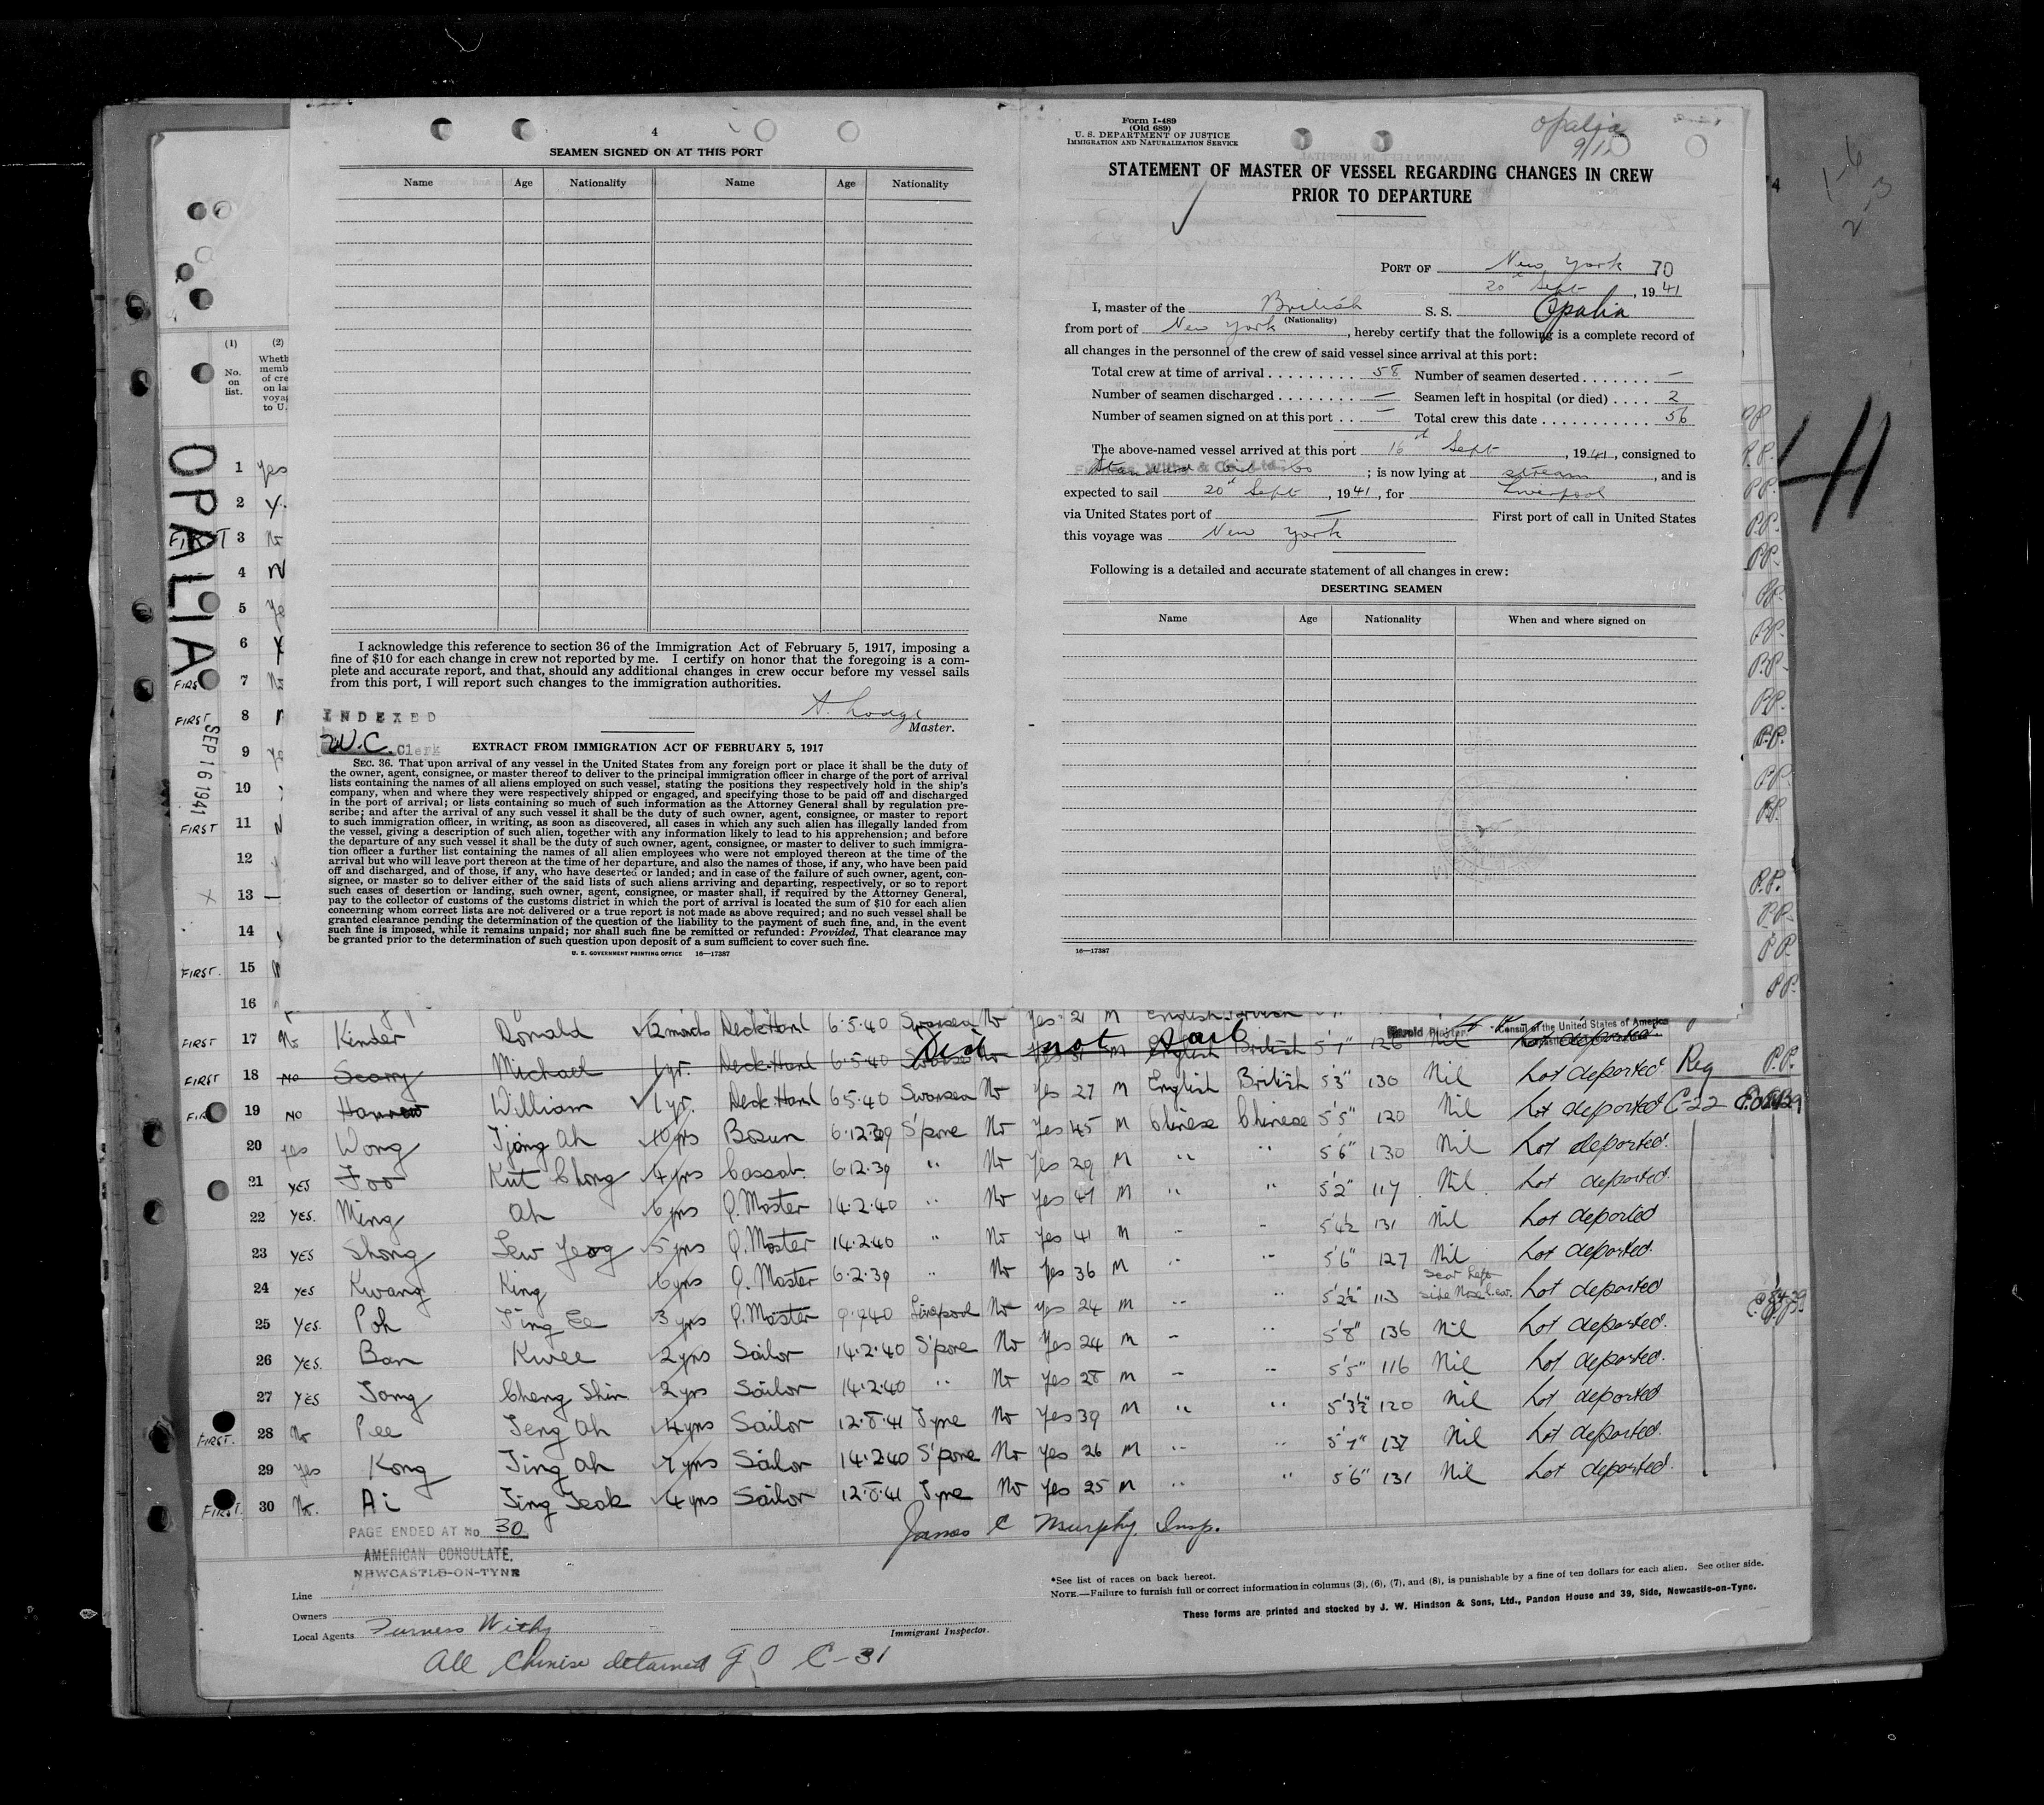 4
SEAMEN SIGNED ON AT THIS PORT
Name Age Nationality Name Age Nationality
I acknowledge this reference to section 36 of the Immigration Act of February 5, 1917, imposing a
fine of $10 for each change in crew not reported by me. I certify on honor that the foregoing is a com-
plete and accurate report, and that, should any additional changes in crew occur before my vessel sails
from this port, I will report such changes to the immigration authorities.
A. Lodge
Master.
INDEXED
W.C. Clerk
EXTRACT FROM IMMIGRATION ACT OF FEBRUARY 5, 1917
SEC. 36. That upon arrival of any vessel in the United States from any foreign port or place it shall be the duty of
the owner, agent, consignee, or master thereof to deliver to the principal immigration officer in charge of the port of arrival
lists containing the names of all aliens employed on such vessel, stating the positions they respectively hold in the ship's
company, when and where they were respectively shipped or engaged, and specifying those to be paid off and discharged
in the port of arrival; or lists containing so much of such information as the Attorney General shall by regulation pre-
scribe; and after the arrival of any such vessel it shall be the duty of such owner, agent, consignee, or master to report
to such immigration officer, in writing, as soon as discovered, all cases in which any such alien has illegally landed from
the vessel, giving a description of such alien, together with any information likely to lead to his apprehension; and before
the departure of any such vessel it shall be the duty of such owner, agent, consignee, or master to deliver to such immigra-
tion officer a further list containing the names of all alien employees who were not employed thereon at the time of the
arrival but who will leave port thereon at the time of her departure, and also the names of those, if any, who have been paid
off and discharged, and of those, if any, who have deserted or landed; and in case of the failure of such owner, agent, con-
signee, or master so to deliver either of the said lists of such aliens arriving and departing, respectively, or so to report
such cases of desertion or landing, such owner, agent, consignee, or master shall, if required by the Attorney General,
pay to the collector of customs of the customs district in which the port of arrival is located the sum of $10 for each alien
concerning whom correct lists are not delivered or a true report is not made as above required; and no such vessel shall be
granted clearance pending the determination of the question of the liability to the payment of such fine, and, in the event
such fine is imposed, while it remains unpaid; nor shall such fine be remitted or refunded: Provided, That clearance may
be granted prior to the determination of such question upon deposit of a sum sufficient to cover such fine.
U. S. GOVERNMENT PRINTING OFFICE 16—17387
Form I-489
(Old 689)
U. S. DEPARTMENT OF JUSTICE
IMMIGRATION AND NATURALIZATION SERVICE
Opalia
STATEMENT OF MASTER OF VESSEL REGARDING CHANGES IN CREW
PRIOR TO DEPARTURE
PORT OF New York 70
20th Sept, 1941
I, master of the British S. S. Opalia
(Nationality)
from port of New York, hereby certify that the following is a complete record of
all changes in the personnel of the crew of said vessel since arrival at this port:
Total crew at time of arrival 58 Number of seamen deserted —
Number of seamen discharged — Seamen left in hospital (or died) 2
Number of seamen signed on at this port — Total crew this date 56
The above-named vessel arrived at this port 16th Sept, 1941, consigned to
Standard Oil Co; is now lying at stream, and is
expected to sail 20th Sept, 1941, for Liverpool
via United States port of — First port of call in United States
this voyage was New York
Following is a detailed and accurate statement of all changes in crew:
DESERTING SEAMEN
Name Age Nationality When and where signed on
16—17387
(1) (2)
No. on list.
OPALIA
SEP 16 1941
1 Yes
2 Y.
FIRST 3 No
4 N
5 Ye
6 Y
FIRST 7 No
FIRST 8
9 Ye
10
FIRST 11 N
12
X 13 —
14
FIRST. 15
16
FIRST 17 No Kinder Ronald 12 months Deck Hand 6.5.40 Swansea No Yes 21 M English British
Did not sail
Consul of the United States of America
FIRST 18 No Scarry Michael 1 yr. Deck Hand 6.5.40 Swansea No Yes 21 M English British 5'7" 126 Nil
FIRST 19 No William 1 yr. Deck Hand 6.5.40 Swansea No Yes 27 M English British 5'3" 130 Nil Not deported Reg P.P.
20 Yes Wong Tjong Ah 10 yrs Bosun 6.12.39 S'pore No Yes 45 M Chinese Chinese 5'5" 120 Nil Not deported C-22
21 YES Foo Kut Chong 4 yrs Cassab. 6.12.39 " No Yes 29 M " " 5'6" 130 Nil Not deported.
22 YES. Ming Ah 6 yrs Q. Master 14.2.40 " No Yes 47 M " " 5'2" 117 Nil Not deported.
23 YES Shong Lew Yeog 5 yrs Q. Master 14.2.40 " No Yes 41 M " " 5'4½ 131 Nil Not deported
24 YES Kwang King 6 yrs Q. Master 6.2.39 " No Yes 36 M " " 5'6" 127 Nil Not deported.
25 YES. Poh Ting Ee 3 yrs Q. Master 9.9.40 Liverpool No Yes 24 M " " 5'2½" 113 Scar Left side Nose & ear. Not deported
26 YES. Ban Kwee 2 yrs Sailor 14.2.40 S'pore No Yes 24 M " " 5'8" 136 Nil Not deported.
27 YES Tong Cheng Shin 2 yrs Sailor 14.2.40 " No Yes 28 M " " 5'5" 116 Nil Not deported.
FIRST. 28 No Pee Teng Ah 4 yrs Sailor 12.8.41 Tyne No Yes 39 M " " 5'3½" 120 Nil Not deported
29 Yes Kong Jing Ah 7 yrs Sailor 14.2.40 S'pore No Yes 26 M " " 5'7" 137 Nil Not deported.
FIRST. 30 No. Ai Jing Teak 4 yrs Sailor 12.8.41 Tyne No Yes 25 M " " 5'6" 131 Nil Not deported.
PAGE ENDED AT No 30
James C Murphy. Insp.
AMERICAN CONSULATE,
NEWCASTLE-ON-TYNE
Line
Owners
Local Agents Furness Withy
Immigrant Inspector.
*See list of races on back hereof.
NOTE.—Failure to furnish full or correct information in columns (3), (6), (7), and (8), is punishable by a fine of ten dollars for each alien. See other side.
These forms are printed and stocked by J. W. Hindson & Sons, Ltd., Pandon House and 39, Side, Newcastle-on-Tyne.
All Chinese detained G O C-31